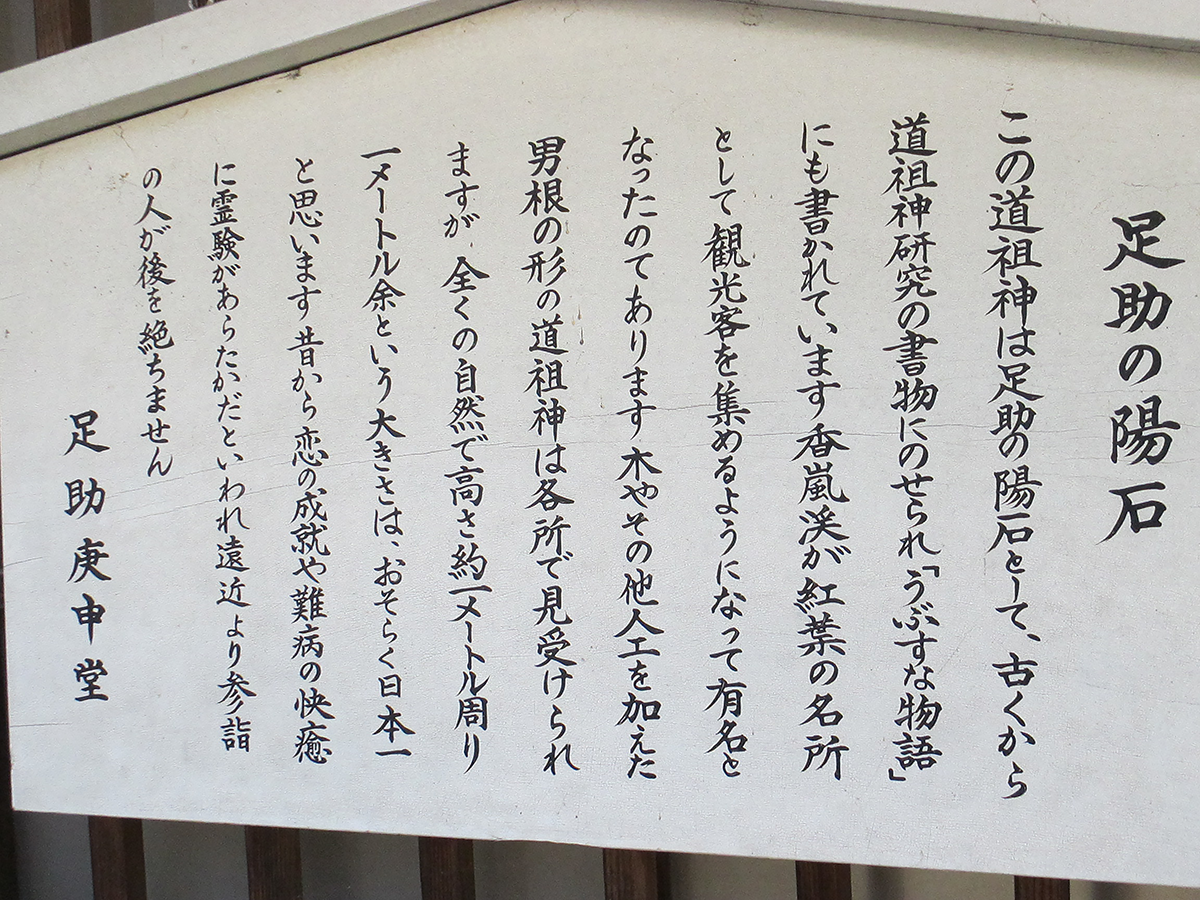 足助の陽石
この道祖神は足助の陽石として、古くから
道祖神研究の書物にのせられ「うぶすな物語」
にも書かれています香嵐渓が紅葉の名所
として観光客を集めるようになって有名と
なったのてあります木やその他人工を加えた
男根の形の道祖神は各所で見受けられ
ますが全くの自然で高さ約一メートル周り
一メートル余という大きさは、おそらく日本一
と思います昔から恋の成就や難病の快癒
に霊験があらたかだといわれ遠近より参詣
の人が後を絶ちません
足助庚申堂